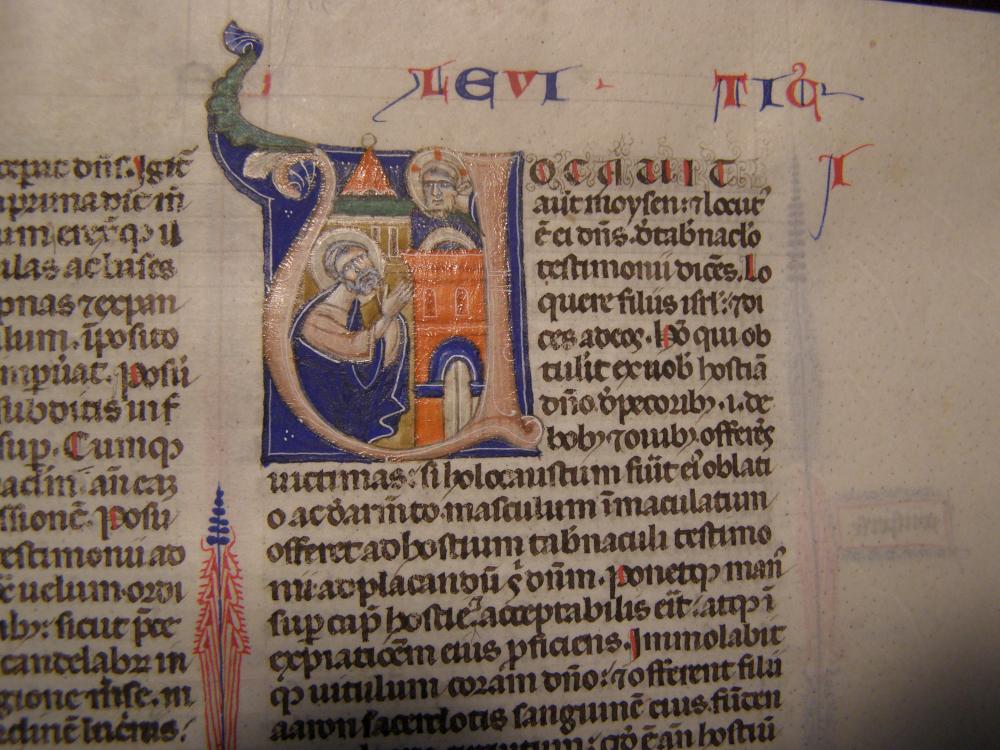 LEVI · TIC
I
cepat dn̄s. Igit̄
prima dic m̄
um erexq̨ u
ulas ac bases
pnas ⁊expan
lum. īposito
mpūat. Posu
subditis inf
sup. Cumq̨
ssionē. Posu
testimonii ad
uelum ordi
candelabꝝ in
gione m̄se. in
UOCAUIT
aut̄ moysen: ⁊locut'
ē ei dn̄s. d̄ tab̄naclo
testimonii dicēs. Lo
quere filiis isr̄l: ⁊di
ces ad eos. Hō qui ob
tulit ex uob̄ hostiā
dn̄o d̄ pecorib;. i. de
bob; ⁊ouib; offerēs
uictimas: si holocaustum fūit ei' oblati
o ac d̄ arm̄to. masculum īmaculatum
offeret ad hostium tab̄naculi testimo
nii ad placandū s̄ dn̄m. Ponetq̨ man'
sup cap̄ hostie. ⁊ acceptabilis eīt. atq̨ ī
expiatiōem eius pficiens. Immolabit
q̨ uitulum corām dn̄o: ⁊offerent filii
aaron sacerdotis sanguinē eius. fūden
hostiū